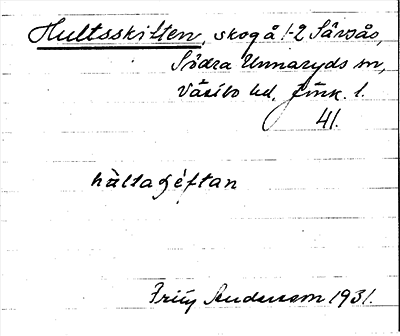 Hultsskiften, skog å 1-2 Sävsås,
Södra Unnaryds sn,
Västbo hd, Jönk. l.
41.
hùltaʃéftan
Fritz Andersson 1931.